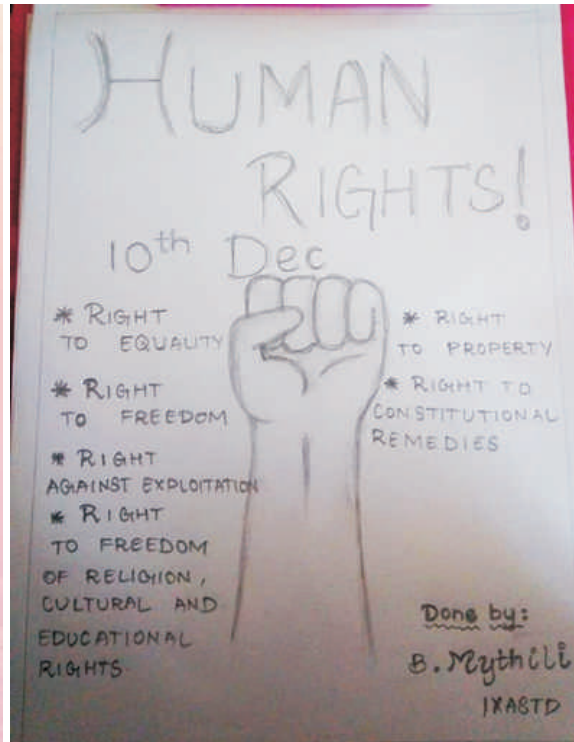 HUMAN
RIGHTS!
10th Dec
* RIGHT
TO EQUALITY
* RIGHT
TO FREEDOM
* RIGHT
AGAINST EXPLOITATION
* RIGHT
TO FREEDOM
OF RELIGION,
CULTURAL AND
EDUCATIONAL
RIGHTS
* RIGHT
TO PROPERTY
* RIGHT TO
CONSTITUTIONAL
REMEDIES
Done by:
B. Mythili
IXASTD